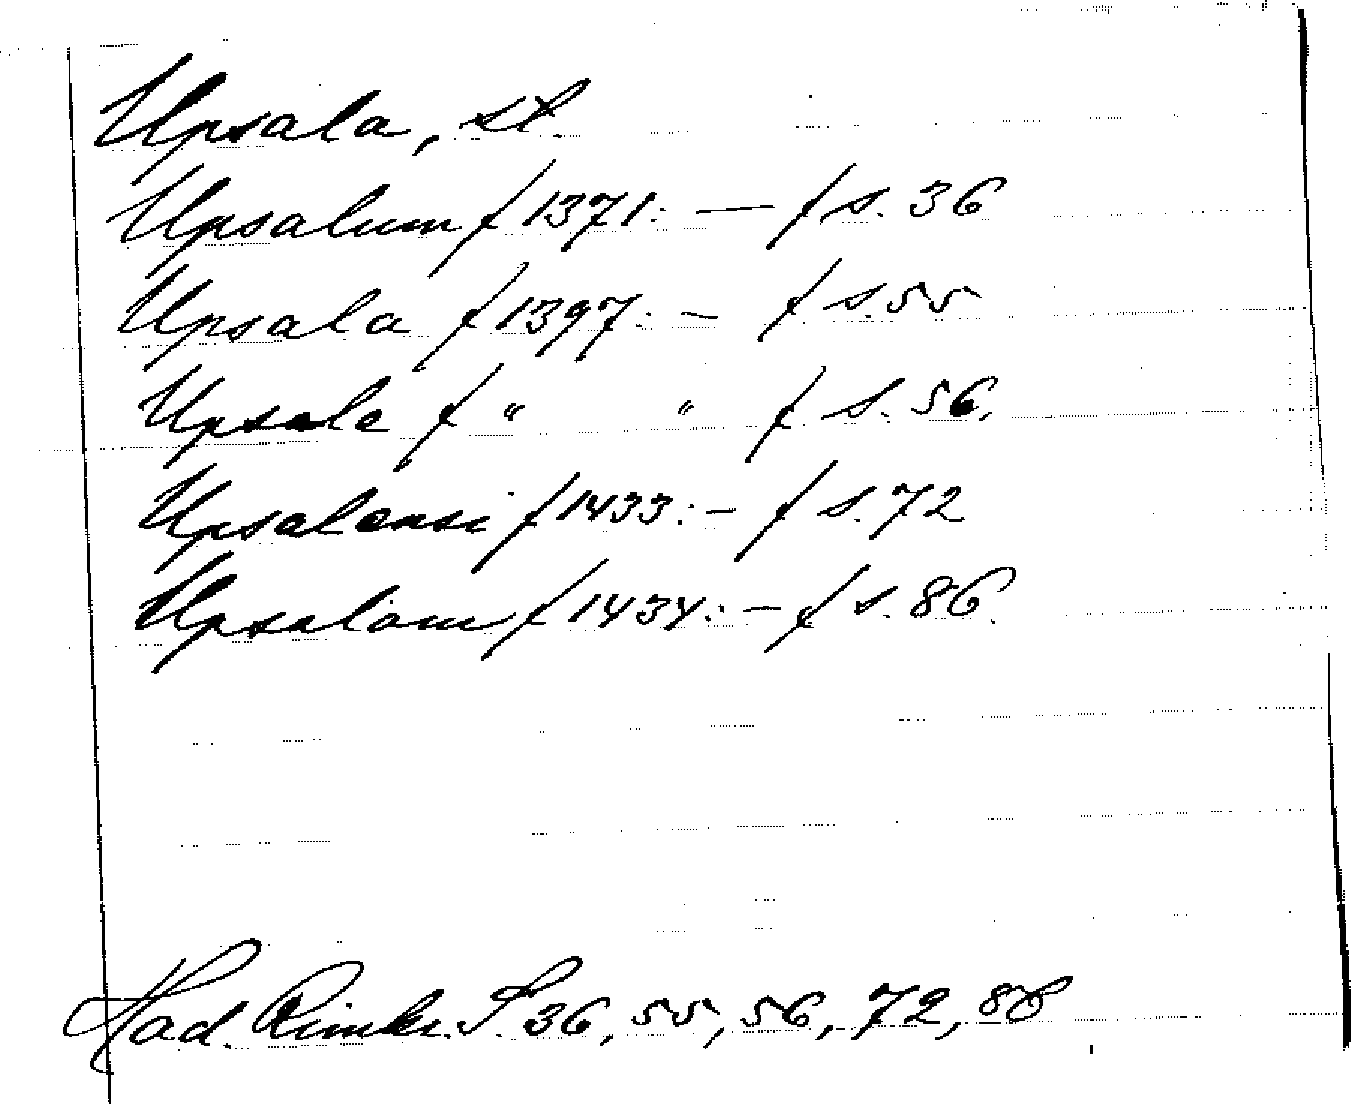 Upsala, st.
Upsalum f 1371: — f s. 36
Upsala f 1397: — f s. 55
Upsale f " " f S. 56.
Upsalensi f 1433: — f s. 72
Upsalom f 1434: — f s. 86.
Had. Rimkr. S. 36, 55, 56, 72, 86